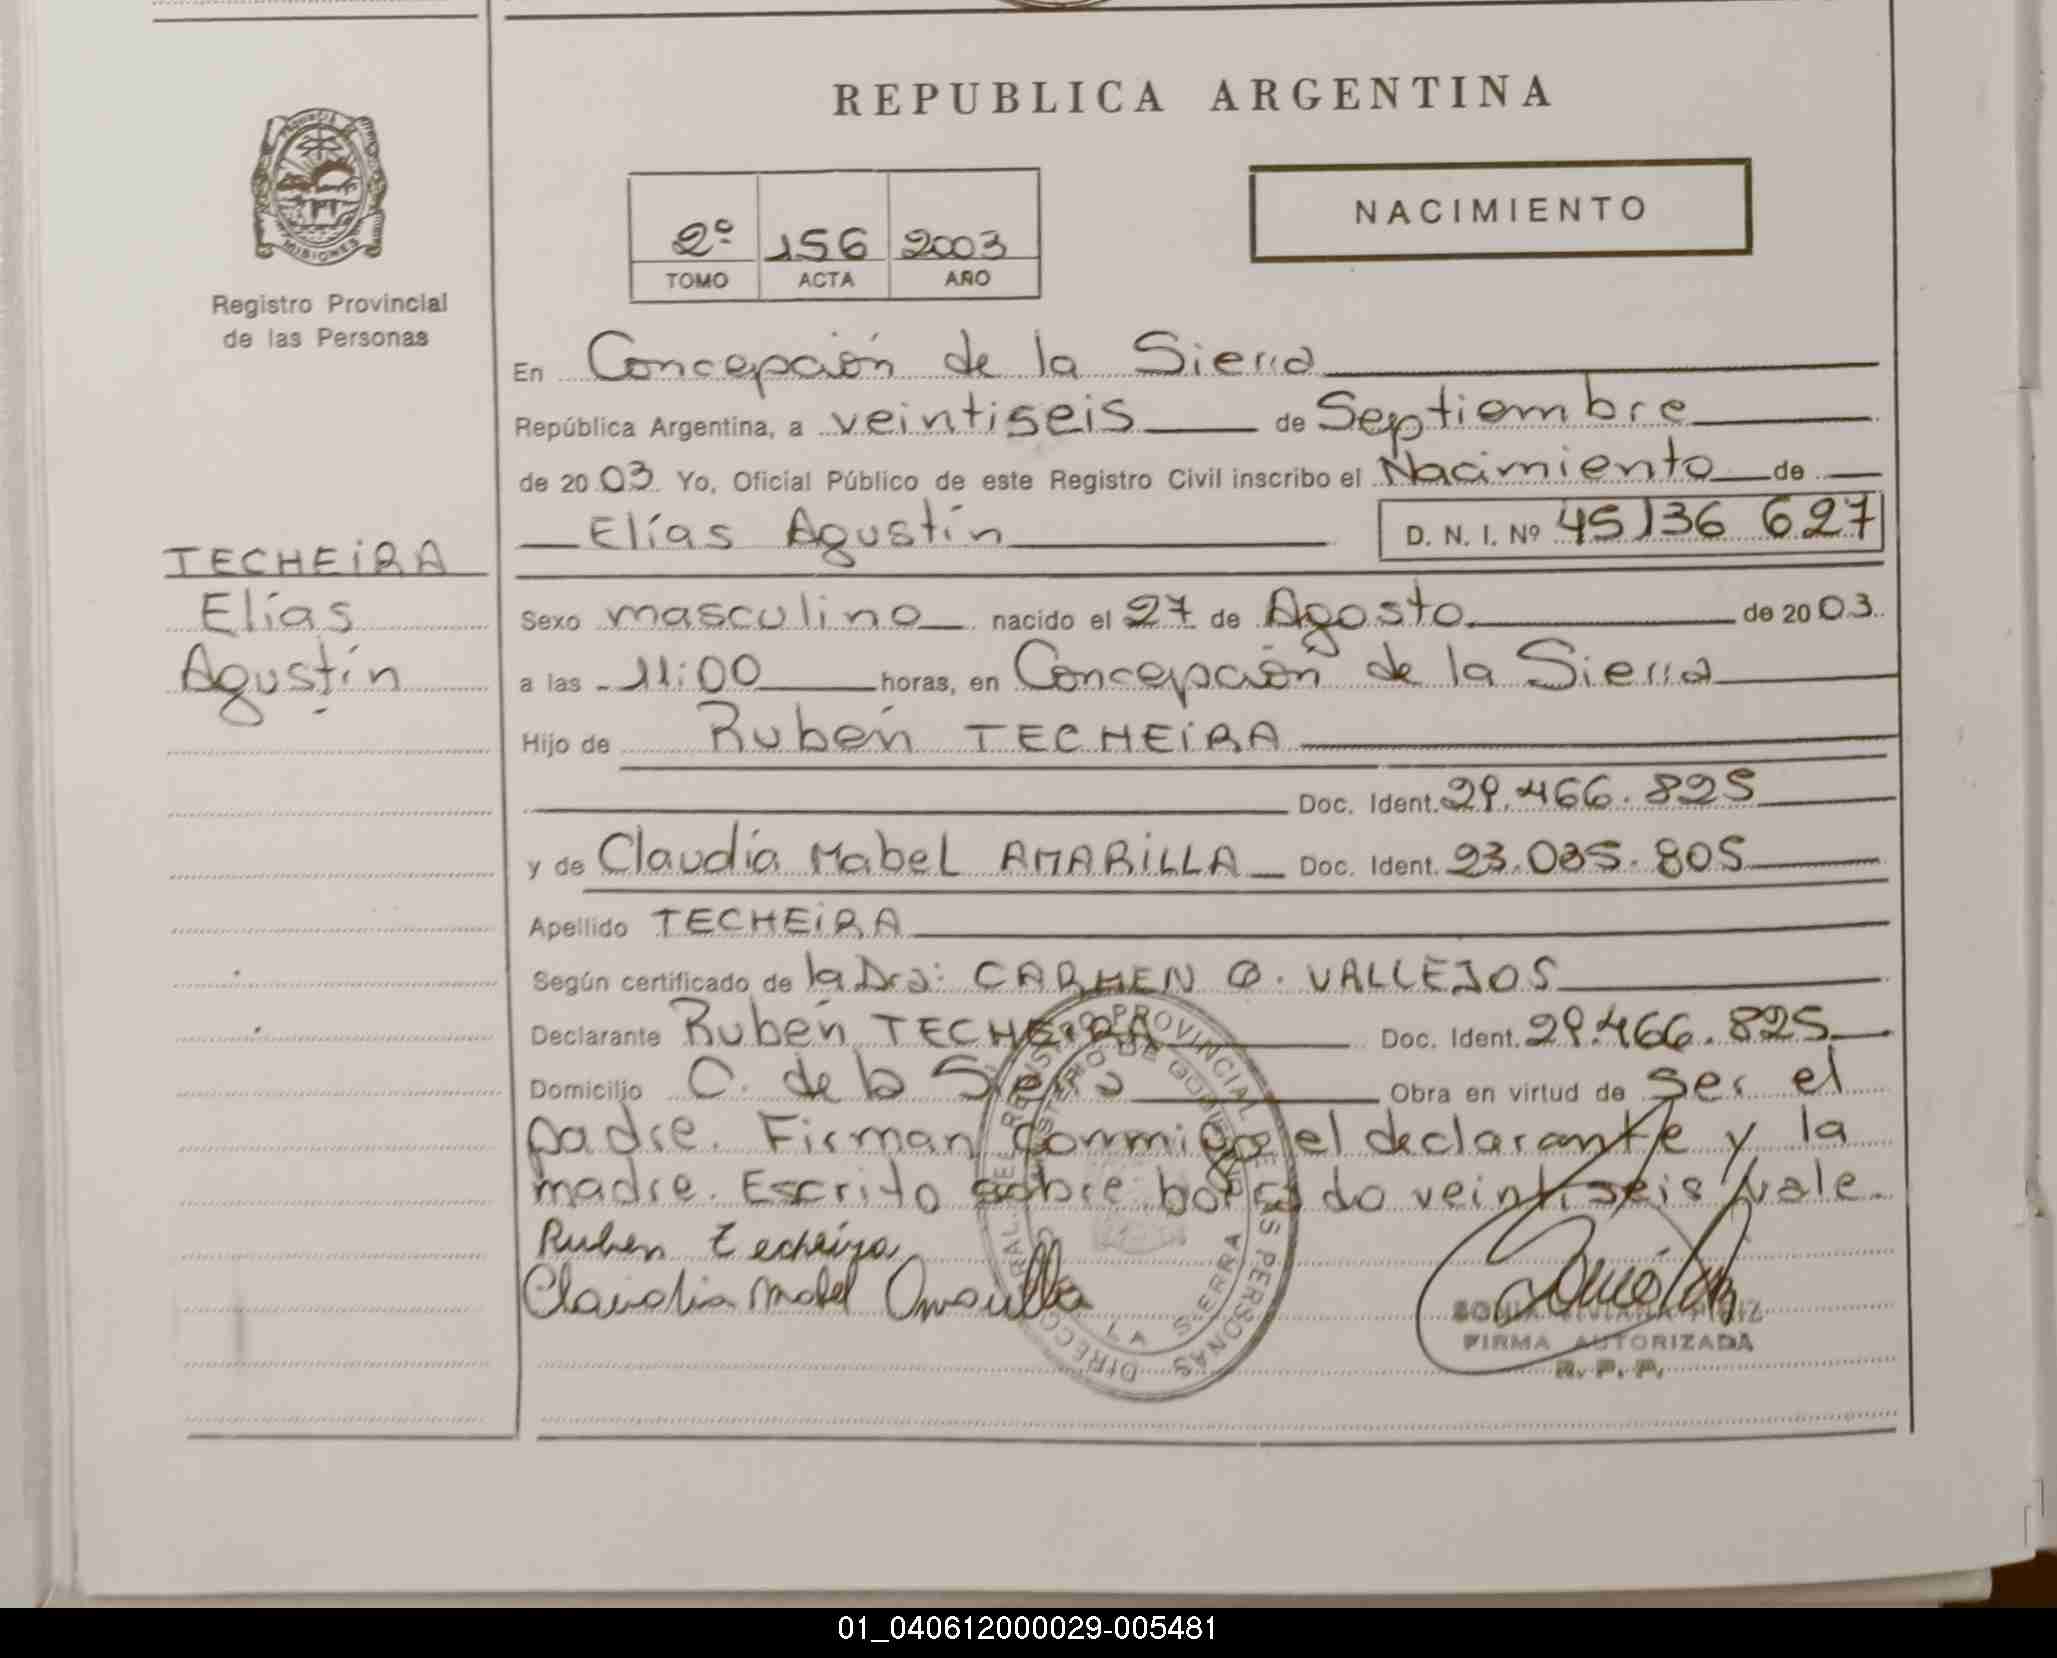 REPUBLICA ARGENTINA
NACIMIENTO
2º 156 2003
TOMO ACTA AÑO
MISIONES
Registro Provincial
de las Personas
TECHEIRA
Elías
Agustín
En Concepción de la Sierra
República Argentina, a veintiseis de Septiembre
de 2003 Yo, Oficial Público de este Registro Civil inscribo el Nacimiento de
Elías Agustín D. N. I. Nº 45136 627
Sexo masculino nacido el 27 de Agosto de 2003
a las 11:00 horas, en Concepción de la Sierra
Hijo de Rubén TECHEIRA
Doc. Ident. 29.466.825
y de Claudia Mabel AMARILLA Doc. Ident. 23.085.805
Apellido TECHEIRA
Según certificado de la Dra: CARMEN O. VALLEJOS
Declarante Rubén TECHEIRA Doc. Ident. 29.466.825
Domicilio C. de la Sierra Obra en virtud de ser el
padre. Firman conmigo el declarante y la
madre. Escrito sobre borrado veintiseis vale.
Ruben Techeira
Claudia Mabel Amarilla
FIRMA AUTORIZADA
R. P. P.
01_040612000029-005481